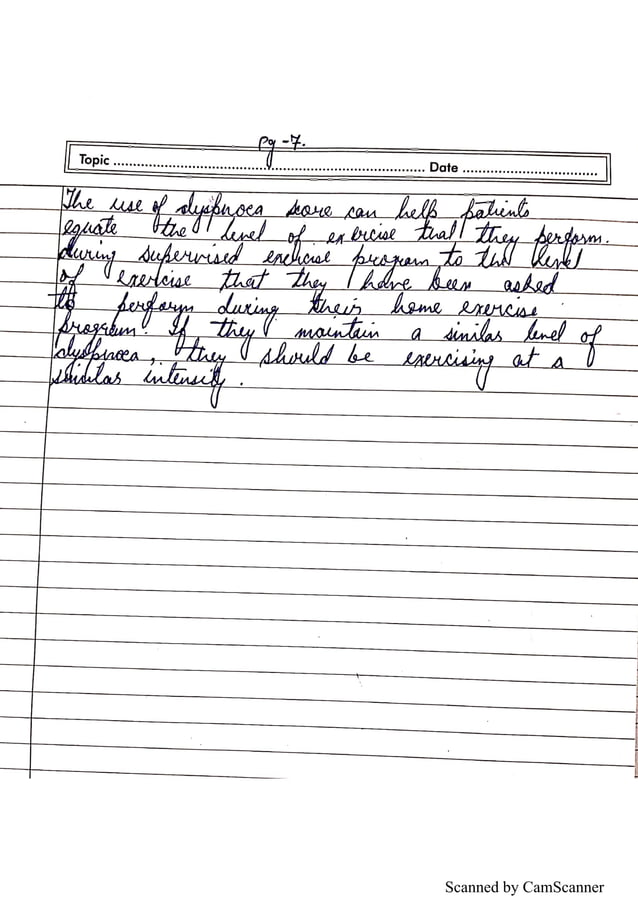 Pg -7.
Topic ........................................................................................ Date ......................................
The use of dyspnoea score can help patients
equate the level of exercise that they perform.
during supervised exercise program to the level
of exercise that they have been asked
to perform during their home exercise
program. If they maintain a similar level of
dyspnoea, they should be exercising at a
similar intensity.
Scanned by CamScanner